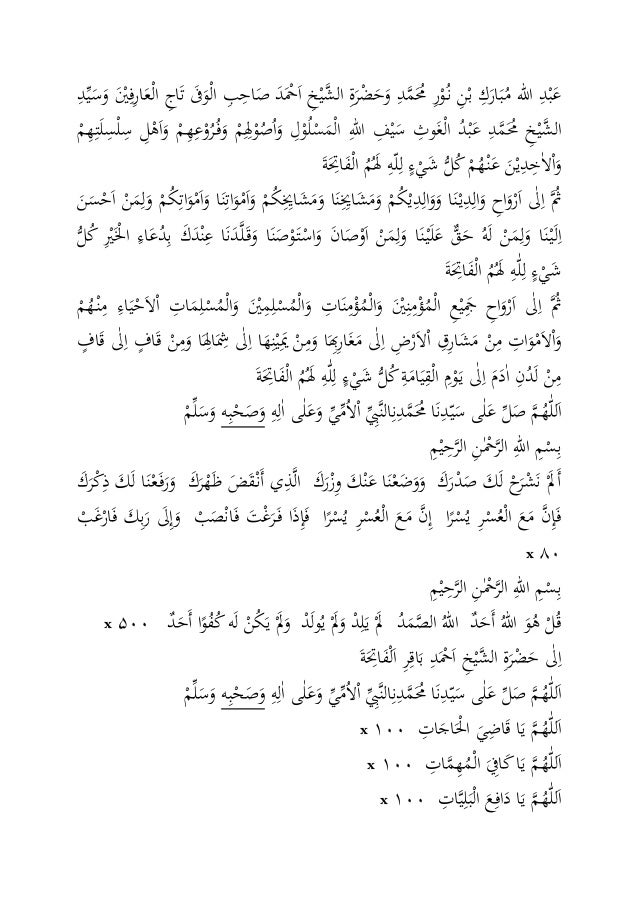 عَبْدِ الله مُبَارَكِ بْنِ نُوْرِ مُحَمَّدٍ وَحَضْرَةِ الشَّيْخِ اَحْمَدَ صَاحِبِ الْوَفَى تَاجِ الْعَارِفِيْنَ وَسَيِّدِ
الشَّيْخِ مُحَمَّدِ عَبْدُ الْغَوثِ سَيْفِ اللهِ الْمَسْلُوْلِ وَاُصُوْلِهِمْ وَفُرُوْعِهِمْ وَاَهْلِ سِلْسِلَتِهِمْ
وَاْلاٰخِدِيْنَ عَنْهُمْ كُلُّ شَيْءٍ لِلّهِ لَهُمُ الْفَاتِحَةَ
ثُمَّ اِلٰى اَرْوَاحِ وَالِدِيْنَا وَوَالِدِيْكُمْ وَمَشَايِخِنَا وَمَشَايِخِكُمْ وَاَمْوَاتِنَا وَاَمْوَاتِكُمْ وَلِمَنْ اَحْسَنَ
اِلَيْنَا وَلِمَنْ لَهُ حَقٌّ عَلَيْنَا وَلِمَنْ اَوْصَانَ وَاسْتَوْصَنَا وَقَلَّدَنَا عِنْدَكَ بِدُعَاءِ الْخَيْرِ كُلُّ
شَيْءٍ لِلّٰهِ لَهُمُ الْفَاتِحَةَ
ثُمَّ اِلٰى اَرْوَاحِ جَمِيْعِ الْمُؤْمِنِيْنَ وَالْمُؤْمِنَاتِ وَالْمُسْلِمِيْنَ وَالْمُسْلِمَاتِ اْلاَحْيَاءِ مِنْهُمْ
وَاْلاَمْوَاتِ مِنْ مَشَارِقِ اْلاَرْضِ اِلٰى مَغَارِبِهَا وَمِنْ يَمِيْنِهَا اِلٰى شِمَالِهَا وَمِنْ قَافٍ اِلٰى قَافٍ
مِنْ لَدُنِ اٰدَمَ اِلٰى يَوْمِ الْقِيَامَةِ كُلُّ شَيْءٍ لِلّٰهِ لَهُمُ الْفَاتِحَةَ
اَللّٰهُمَّ صَلِّ عَلٰى سَيِّدِنَا مُحَمَّدِنِالنَّبِيِّ اْلاُمِّيِّ وَعَلٰى اٰلِهِ وَصَحْبِه وَسَلِّمْ
بِسْمِ اللهِ الرَّحْمٰنِ الرَّحِيْمِ
أَلَمْ نَشْرَحْ لَكَ صَدْرَكَ وَوَضَعْنَا عَنْكَ وِزْرَكَ الَّذِي أَنْقَضَ ظَهْرَكَ وَرَفَعْنَا لَكَ ذِكْرَكَ
فَإِنَّ مَعَ الْعُسْرِ يُسْرًا إِنَّ مَعَ الْعُسْرِ يُسْرًا فَإِذَا فَرَغْتَ فَانْصَبْ وَإِلَى رَبِكَ فَارْغَبْ
٨٠ x
بِسْمِ اللهِ الرَّحْمٰنِ الرَّحِيْمِ
قُلْ هُوَ اللهُ أَحَدٌ اللهُ الصَّمَدُ لَمْ يَلِدْ وَلَمْ يُولَدْ وَلَمْ يَكُنْ لَه كُفُوًا أَحَدٌ ۵٠٠ x
اِلٰى حَضْرَةِ الشَّيْخِ اَحْمَدِ بَاقِرِ اَلْفَاتِحَةَ
اَللّٰهُمَّ صَلِّ عَلٰى سَيِّدِنَا مُحَمَّدِنِالنَّبِيِّ اْلاُمِّيِّ وَعَلٰى اٰلِهِ وَصَحْبِه وَسَلِّمْ
اَللّٰهُمَّ يَا قَاضِيَ الْحَاجَاتِ ١٠٠ x
اَللّٰهُمَّ يَا كَافِيَ الْمُهِمَّاتِ ١٠٠ x
اَللّٰهُمَّ يَا دَافِعَ الْبَلِيَّاتِ ١٠٠ x